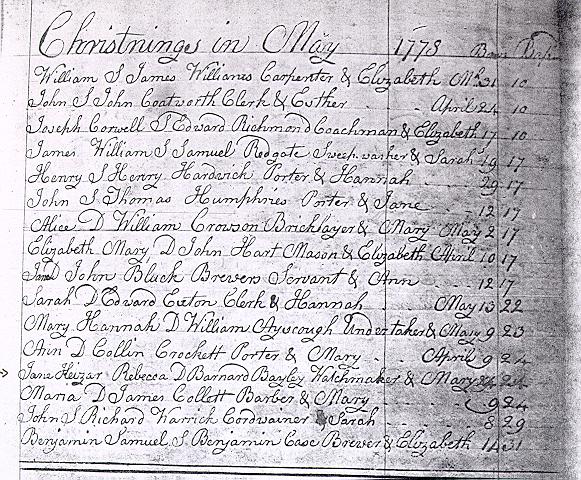 Christnings in May 1778 Born Bapt
William S James Williams Carpenter & Elizabeth Mh 31 10
John S John Coatworth Clerk & Esther - - April 24 10
Joseph Corwell S Edward Richmond Coachman & Elizabeth 17 10
James William S Samuel Redgate Sweep washer & Sarah 19 17
Henry S Henry Hardwick Porter & Hannah - - 29 17
John S Thomas Humphries Porter & Jane - - 12 17
Alice D William Crowson Bricklayer & Mary May 2 17
Elizabeth Mary D John Hart Mason & Elizabeth April 10 17
Jane D John Bluck Brewers Servant & Ann - - 12 17
Sarah D Edward Exton Clerk & Hannah - - May 13 22
Mary Hannah D William Ayscough Undertaker & Mary 9 23
Ann D Collin Crockett Porter & Mary - - April 9 24
Jane Rebecca D Barnard Bayley Watchmaker & Mary 24 24
Maria D James Collett Barber & Mary - - 9 24
John S Richard Warrick Cordwainer & Sarah - - 8 29
Benjamin Samuel S Benjamin Case Brewer & Elizabeth 14 31